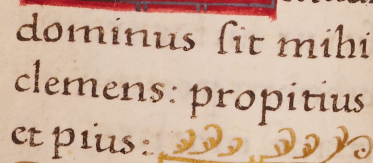 dominus ſit mihi
clemens: propitius
et pius: